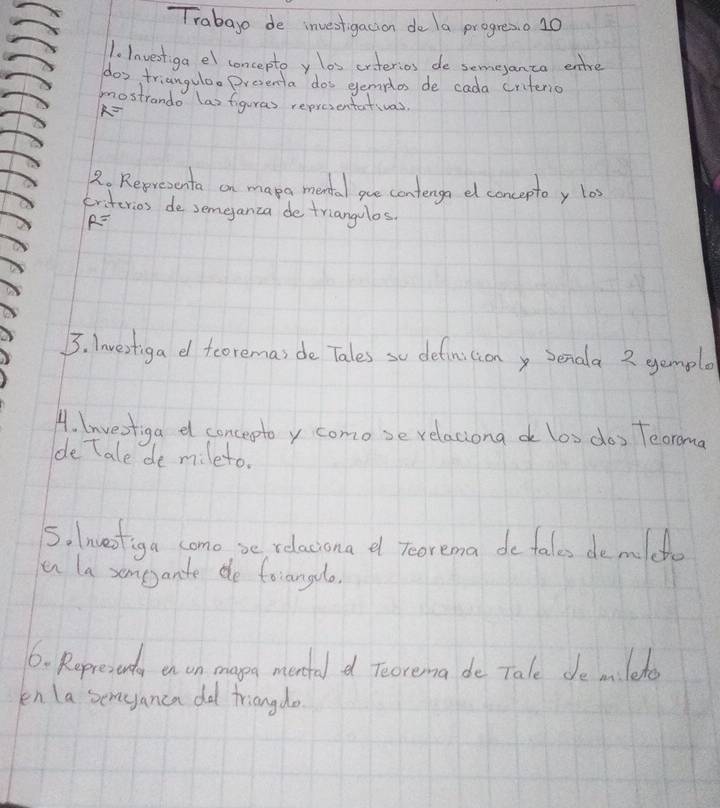 Trabajo de investigacion de la progresio 10
1. Investiga el concepto y los criterios de semejanza entre
dos triangulo. Presenta dos ejemplos de cada criterio
mostrando las figuras representativas.
R=
2. Representa en mapa mental que contenga el concepto y los
criterios de semejanza de triangulos.
R=
3. Investiga el teoremas de Tales su definicion y senala 2 ejemplo
4. Investiga el concepto y como se relaciona de los dos Teorema
de Tale de mileto.
5. Investiga como se relaciona el Teorema de tales de mileto
en la semejante de triangulo.
6. Representa en un mapa mental el Teorema de Tale de mileto
en la semejanza del triangulo.